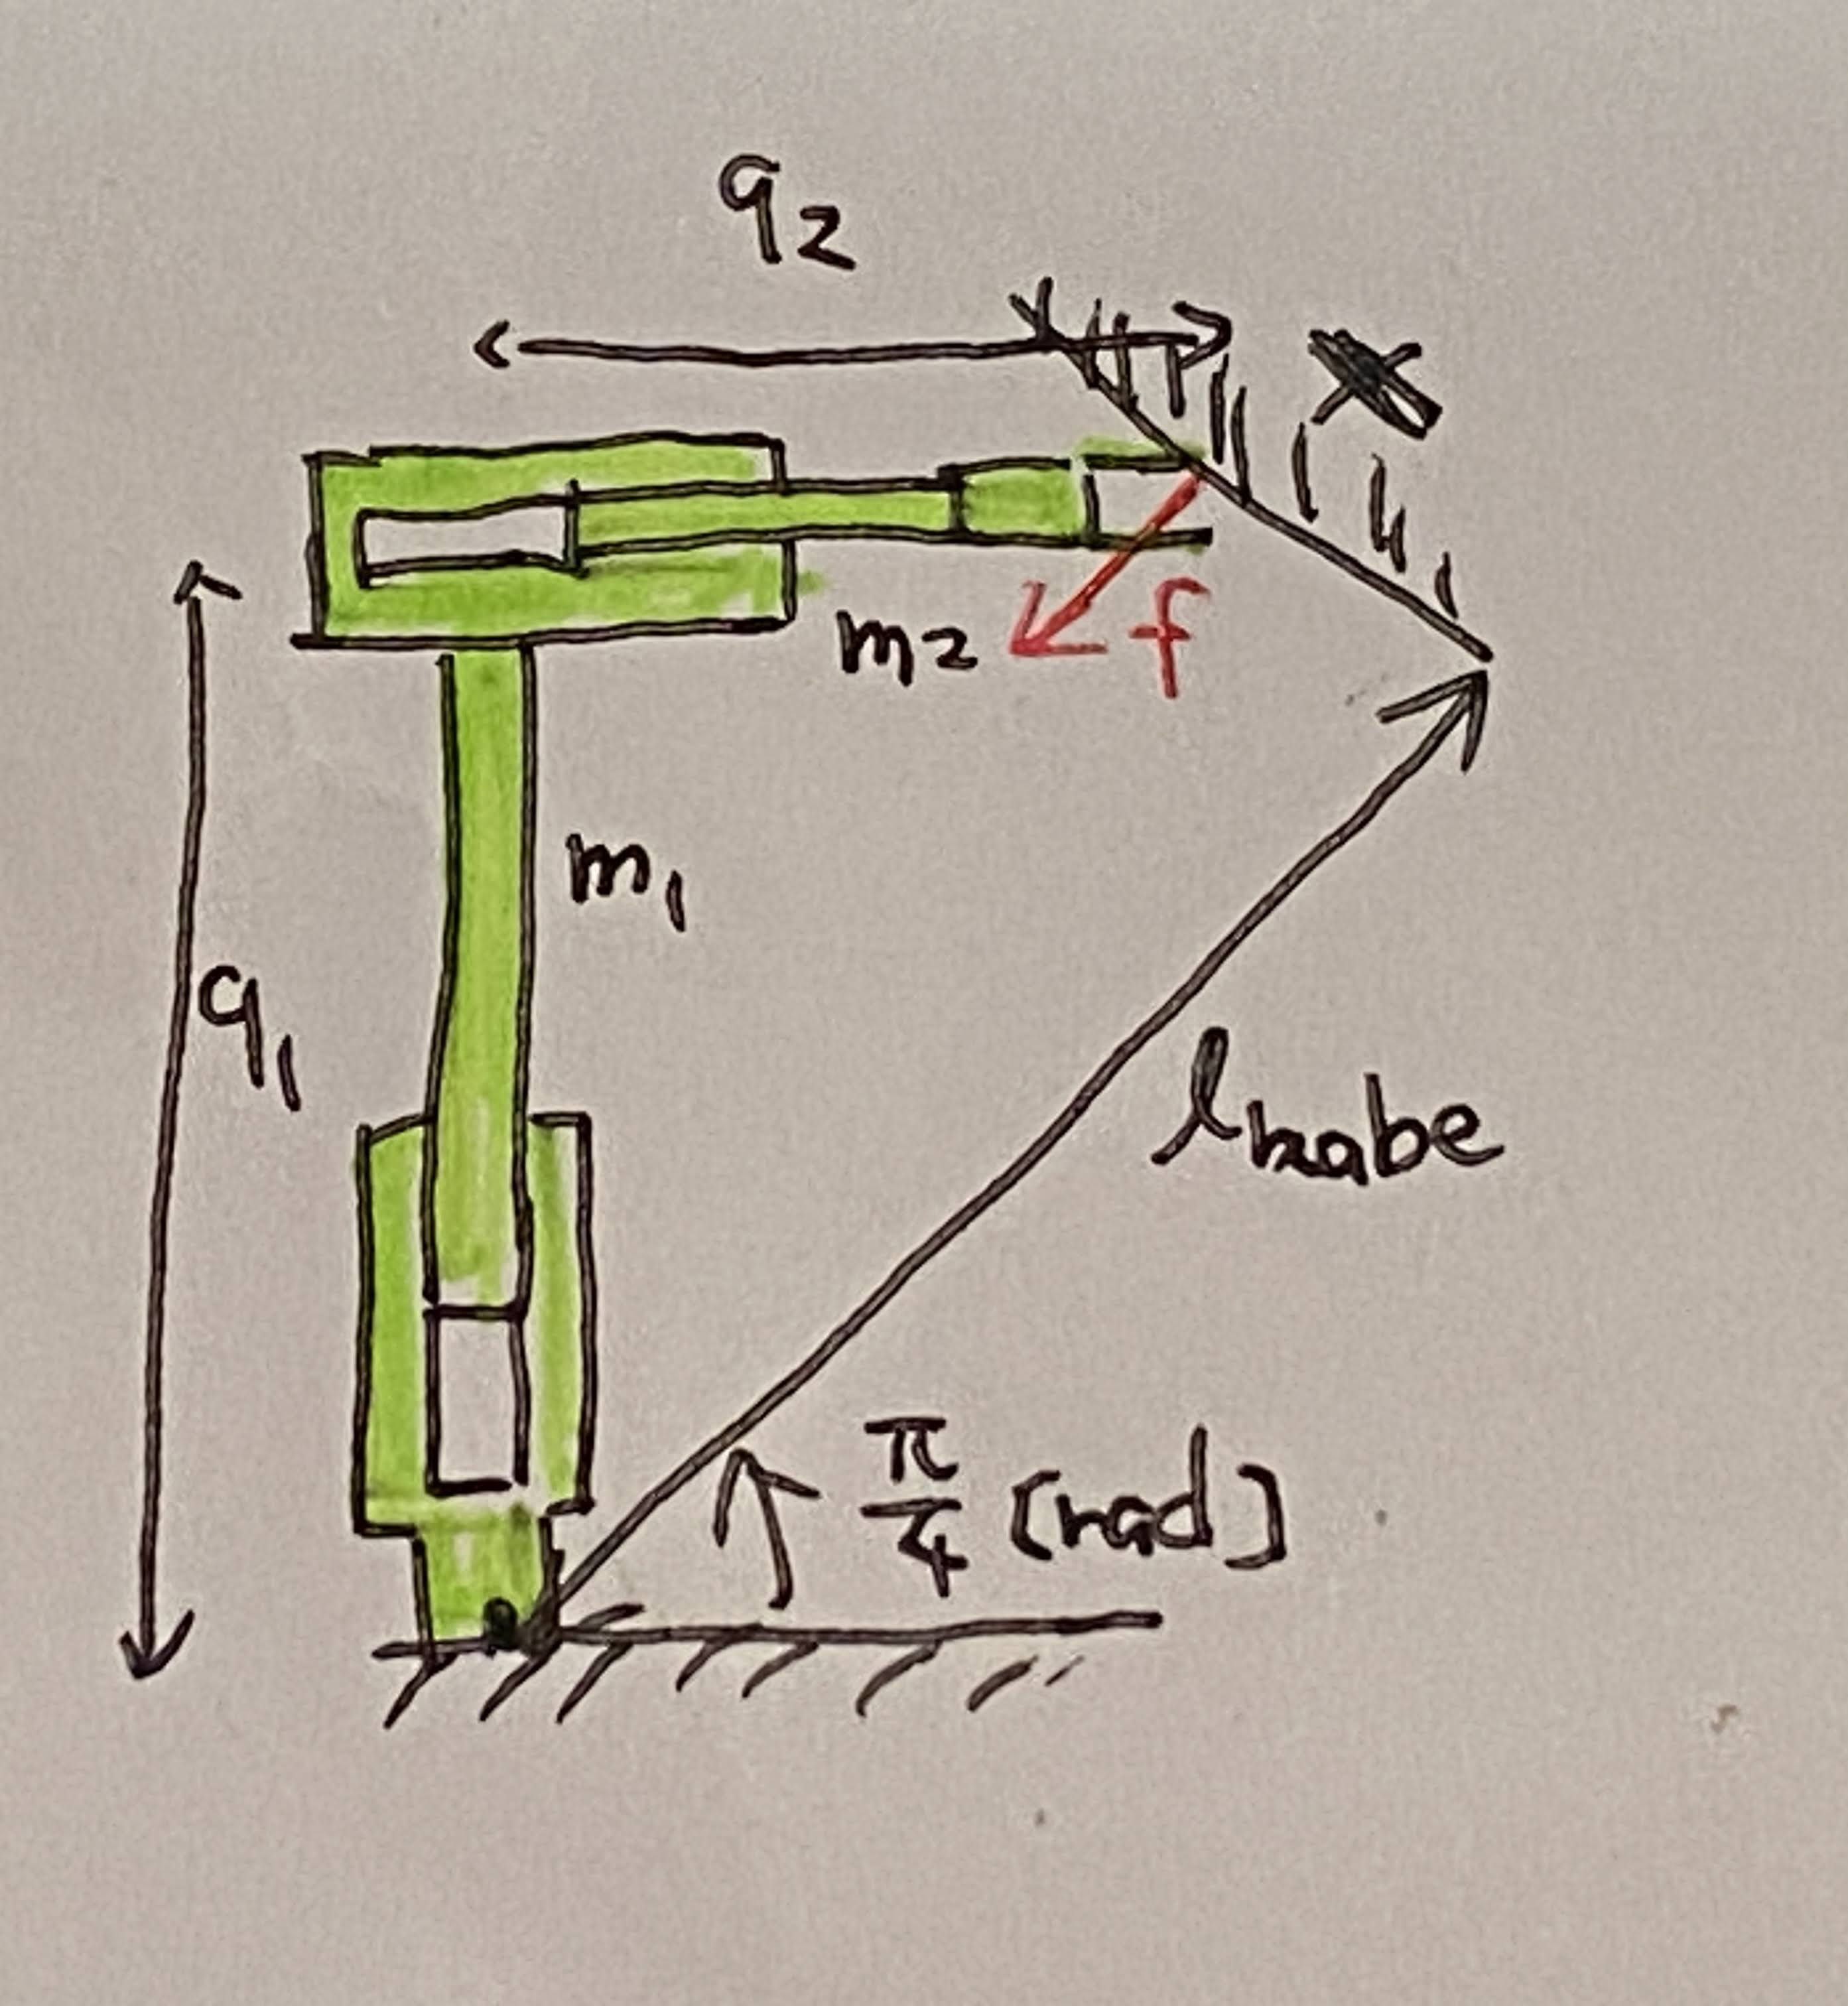 q2
m2
f
m1
q1
lkabe
π/4 [rad]